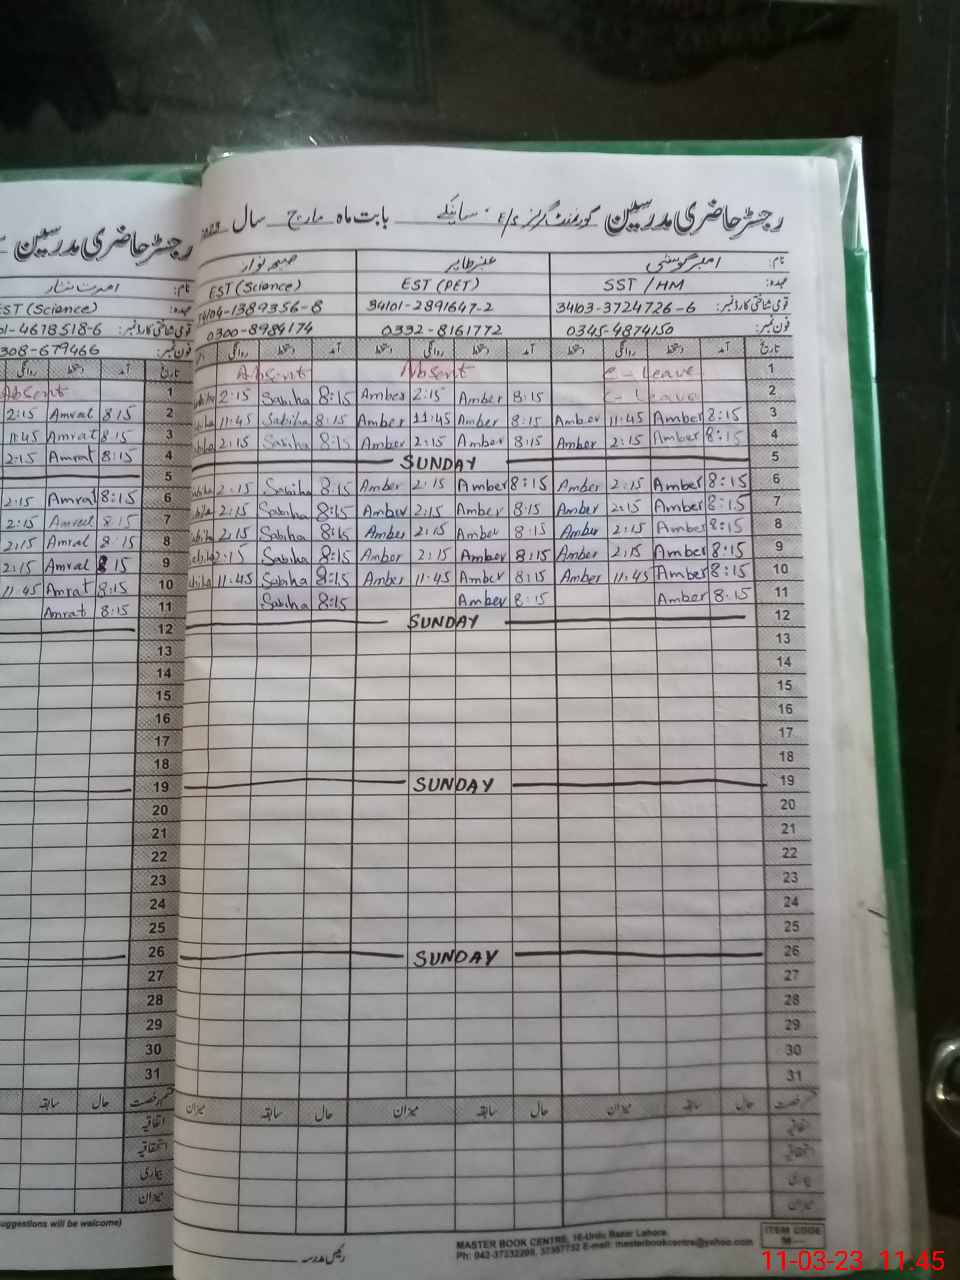 رجسٹر حاضری مدرسین گورنمنٹ گرلز e/s سائیکے بابت ماہ مارچ سال
رجسٹر حاضری مدرسین
نام: امبر گوسی عنبر طاہر صبیحہ نواز
نام:
عہدہ: SST / HM EST (PET) EST (Science)
عہدہ: EST (Science)
قومی شناختی کارڈ نمبر: 34103-3724726-6 34101-2891647-2 1389356-8
قومی شناختی کارڈ نمبر: 01-4618518-6
فون نمبر: 0345-4874150 0332-8161772 0300-8984174
فون نمبر: 308-679466
تاریخ آمد دستخط روانگی دستخط آمد دستخط روانگی دستخط آمد دستخط روانگی
تاریخ آمد دستخط روانگی
Absent Absent C-Leave 1
Absent 1
2:15 Sabiha 8:15 Amber 2:15 Amber 8:15 C-Leave 2
2:15 Amrat 8:15 2
11:45 Sabiha 8:15 Amber 11:45 Amber 8:15 Amber 11:45 Amber 8:15 3
11:45 Amrat 8:15 3
2:15 Sabiha 8:15 Amber 2:15 Amber 8:15 Amber 2:15 Amber 8:15 4
2:15 Amrat 8:15 4
SUNDAY 5
5
2:15 Sabiha 8:15 Amber 2:15 Amber 8:15 Amber 2:15 Amber 8:15 6
2:15 Amrat 8:15 6
2:15 Sabiha 8:15 Amber 2:15 Amber 8:15 Amber 2:15 Amber 8:15 7
2:15 Amrat 8:15 7
2:15 Sabiha 8:15 Amber 2:15 Amber 8:15 Amber 2:15 Amber 8:15 8
2:15 Amrat 8:15 8
2:15 Sabiha 8:15 Amber 2:15 Amber 8:15 Amber 2:15 Amber 8:15 9
2:15 Amrat 8:15 9
11:45 Sabiha 8:15 Amber 11:45 Amber 8:15 Amber 11:45 Amber 8:15 10
11:45 Amrat 8:15 10
Sabiha 8:15 Amber 8:15 Amber 8:15 11
Amrat 8:15 11
SUNDAY 12
12
13
13
14
14
15
15
16
16
17
17
18
18
SUNDAY 19
19
20
20
21
21
22
22
23
23
24
24
25
25
SUNDAY 26
26
27
27
28
28
29
29
30
30
31
31
قسم رخصت حال سابقہ میزان حال سابقہ میزان حال سابقہ میزان
قسم رخصت حال سابقہ
اتفاقیہ
اتفاقیہ
استحقاقیہ
استحقاقیہ
بیماری
بیماری
میزان
میزان
uggestions will be welcome)
رئیس مدرسہ
MASTER BOOK CENTRE, 16-Urdu Bazar Lahore.
Ph: 042-37232209, 37367732 E-mail: masterbookcentre@yahoo.com
ITEM CODE
M
11-03-23 11:45